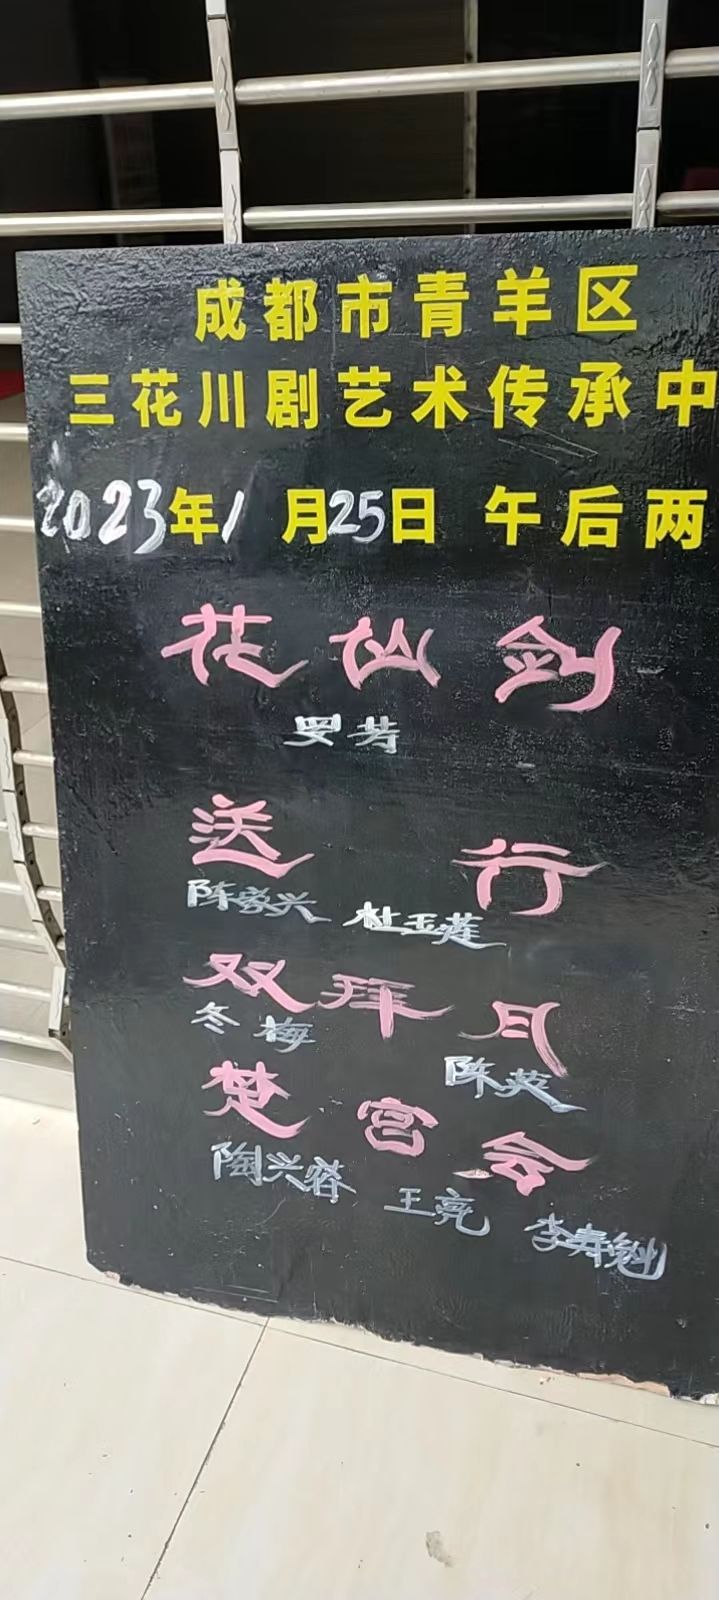 成都市青羊区
三花川剧艺术传承中
2023年1月25日 午后两
花仙剑
罗芳
送行
陈家兴 杜玉莲
双拜月
冬梅 陈英
楚宫会
陶兴蓉 王亮 李寿